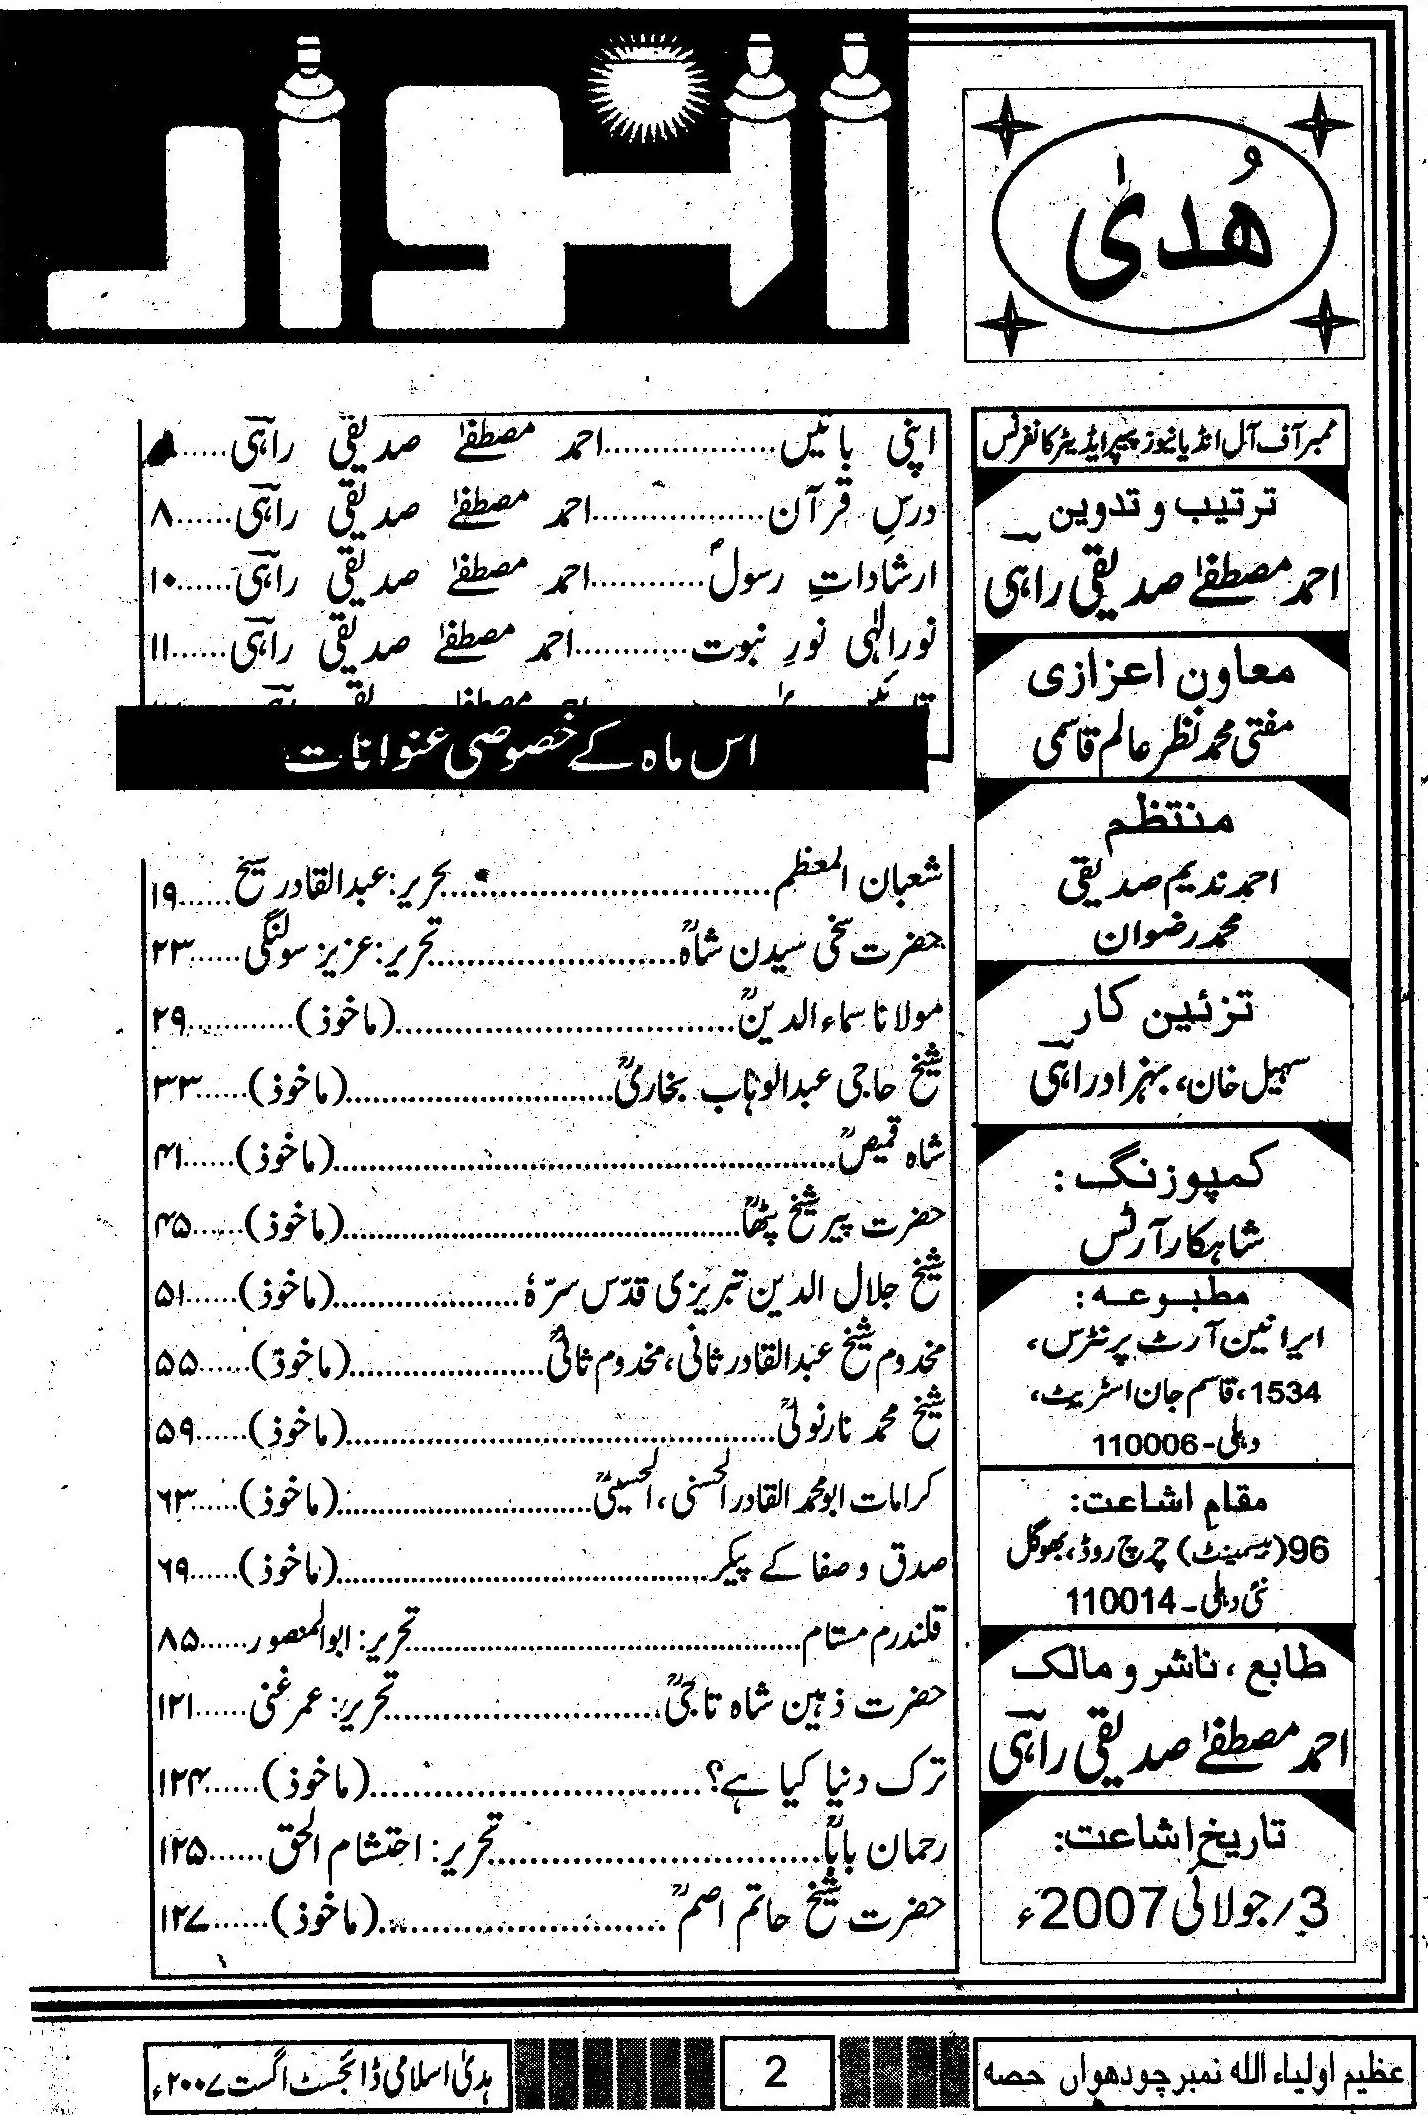 ھُدیٰ
انوار
ممبر آف آل انڈیا نیوز پیپر ایڈیٹر کانفرنس
ترتیب و تدوین
احمد مصطفےٰ صدیقی راہی
معاون اعزازی
مفتی محمد نظر عالم قاسمی
منتظم
احمد ندیم صدیقی
محمد رضوان
تزئین کار
سہیل خان، بہزاد راہی
کمپوزنگ:
شاہکار آرٹس
مطبوعہ:
ایرانین آرٹ پرنٹرس،
1534، قاسم جان اسٹریٹ،
دہلی-110006
مقام اشاعت:
96(بیسمینٹ) چرچ روڈ، بھوگل
نئی دہلی-110014
طابع، ناشر و مالک
احمد مصطفےٰ صدیقی راہی
تاریخ اشاعت:
3/جولائی 2007ء
اپنی باتیں................احمد مصطفےٰ صدیقی راہی......
درسِ قرآن................احمد مصطفےٰ صدیقی راہی......۸
ارشاداتِ رسولؐ...........احمد مصطفےٰ صدیقی راہی......۱۰
نورِ الٰہی نورِ نبوت...........احمد مصطفےٰ صدیقی راہی......۱۱
اس ماہ کے خصوصی عنوانات
شعبان المعظم................تحریر: عبدالقادر شیخ......۱۹
حضرت سخی سیدن شاہؒ................تحریر: عزیز سولنگی......۲۳
مولانا سماء الدینؒ................(ماخوذ)............۲۹
شیخ حاجی عبدالوہاب بخاریؒ................(ماخوذ)......۳۳
شاہ قمیصؒ................(ماخوذ)......۴۱
حضرت پیر شیخ پٹھاؒ................(ماخوذ)......۴۵
شیخ جلال الدین تبریزی قدّس سرّہٗ................(ماخوذ)......۵۱
مخدوم شیخ عبدالقادر ثانی، مخدوم ثانیؒ................(ماخوذ)......۵۵
شیخ محمد نارنولیؒ................(ماخوذ)......۵۹
کرامات ابو محمد القادر الحسنی، الحسینیؒ................(ماخوذ)......۶۳
صدق و صفا کے پیکر................(ماخوذ)......۶۹
قلندرم مستام................تحریر: ابوالمنصور......۸۵
حضرت ذہین شاہ تاجیؒ................تحریر: عمر غنی......۱۲۱
ترک دنیا کیا ہے؟................(ماخوذ)......۱۲۴
رحمان باباؒ................تحریر: احتشام الحق......۱۲۵
حضرت شیخ حاتم اصمؒ................(ماخوذ)......۱۲۷
عظیم اولیاء اللہ نمبر چودھواں حصہ
2
ہدیٰ اسلامی ڈائجسٹ اگست ۲۰۰۷ء